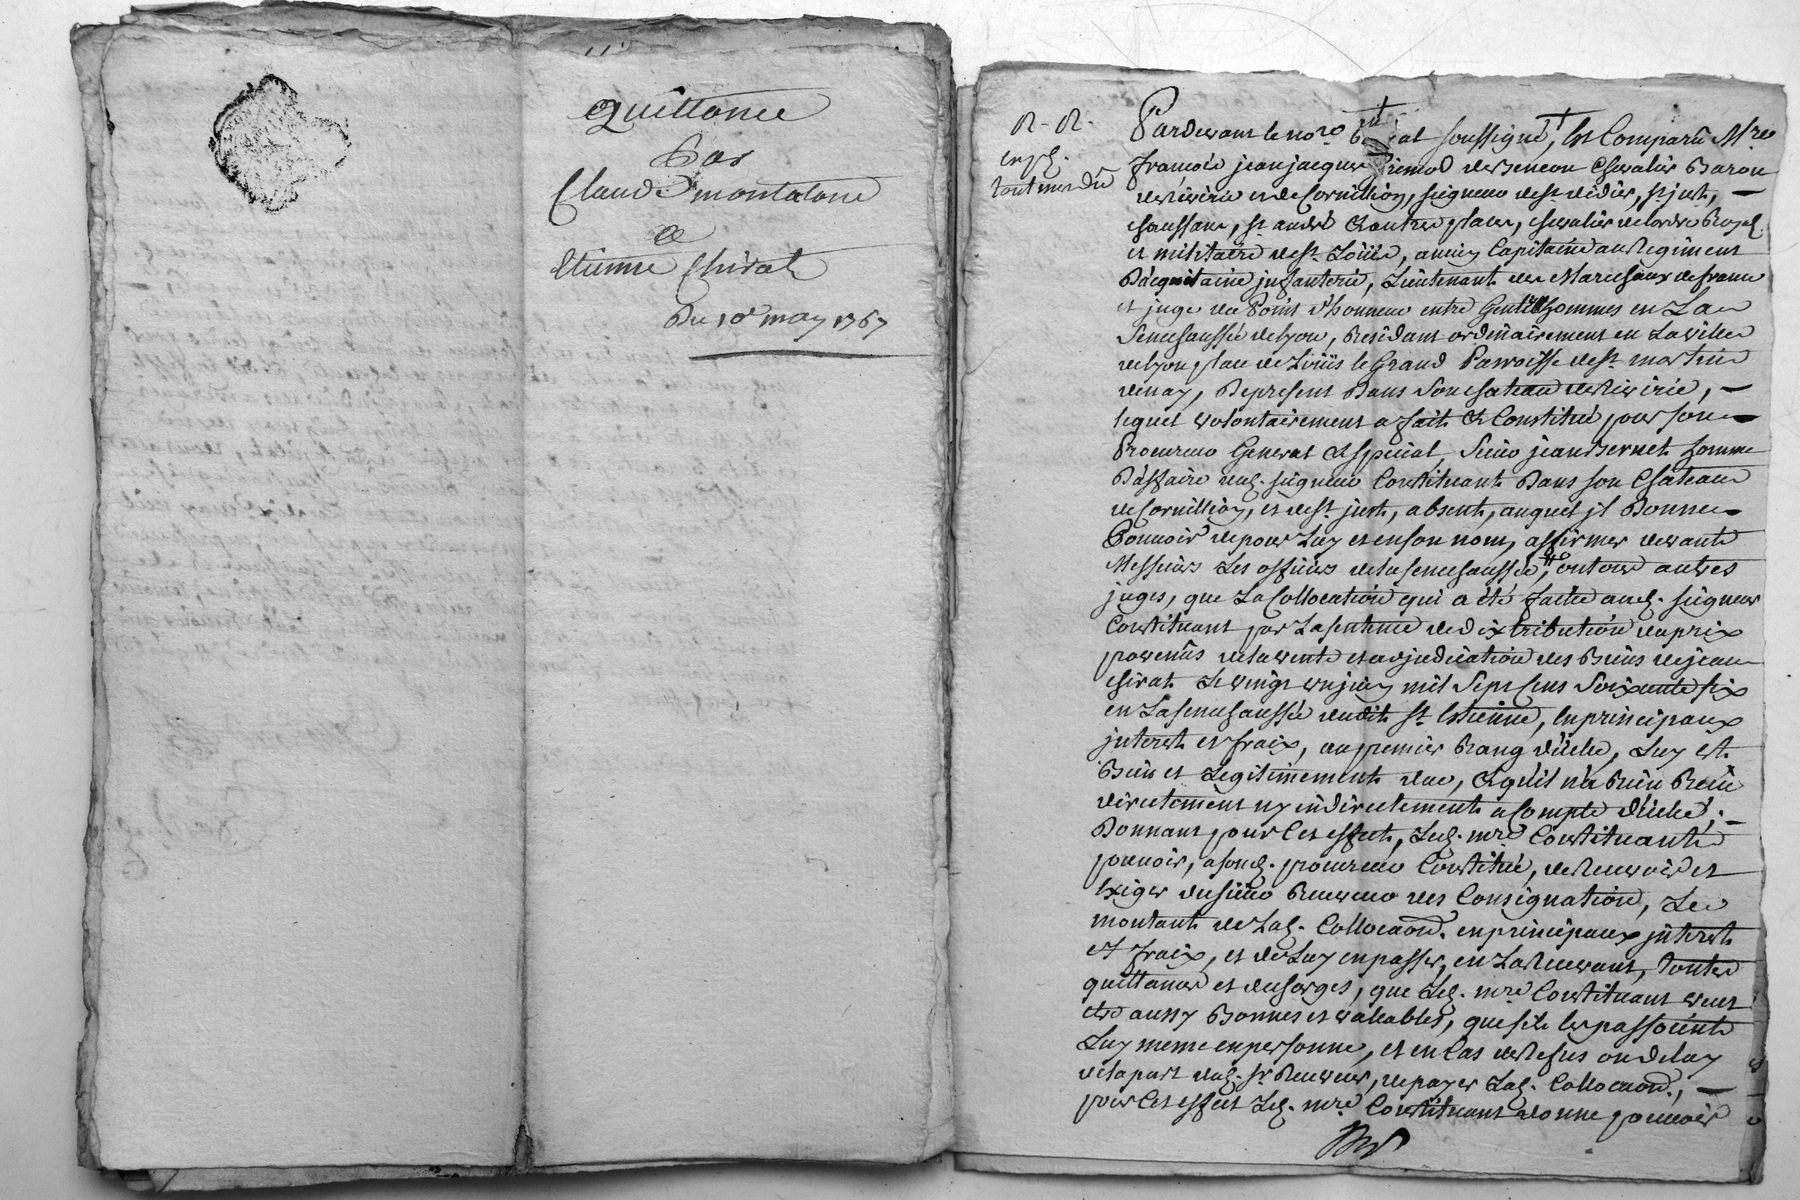 Quittance
Par
Claude montalone
A
Etienne Chirat
Du 10e may 1767
R - R -
exp.
tout mon dû
Pardevant le no.re soussigné, est Comparu M.re
francois jean jacques Rimod de Bencon Chevalier Baron
de Riverie et de Cornillion, seigneur de st didier, st just, —
chaussan, st andré & autres places, chevalier de lordre Royal
et militaire de st Loüis, ancien Capitaine au Regiment
D'acquitaine jnfanterie, Lieutenant des Marechaux de france
et juge du Point d'honneur entre Gentilshommes en La
Senechaussée de Lyon, Residant ordinairement en La ville
de Lyon place de Loüis le Grand Parroisse de st martin
denay, De present Dans son chateau de Riverie, —
lequel volontairement a fait & Constitué pour son
Procureur General & special, Sieur jean Bernet homme
D'affaire dud. seigneur Constituant Dans son Chateau
de Cornillion, et de st just, absent, auquel jl Donne
Pouvoir de pour Luy et en son nom, affirmer devant
Messieurs Les officiers de la senechaussée, ou tous autres
juges, que La Collocation qui a été faite aud. seigneur
Constituant par La sentence de distribution du prix
provenus de la vente et adjudication des Biens de jean
chirat Le vingt un juin mil sept Cent soixante six
en La senechaussée dudit st Etienne, en principaux
jnterest et fraix, au premier Rang d'icelle, Luy est
Bien et Legitimement due, & quil n'a Rien Receu
directement ny indirectement a Compte d'icelle; —
Donnant pour Cet effet, Led. m.re Constituant
pouvoir, a son d. procureur Constitué, de Recevoir et
Exiger du sieur Receveur des Consignation, Le
montant de Lad. Collocaon. en principaux jnterest
et fraix, et de Luy en passer, en La Recevant, toutes
quittances et decharges, que Led. m.re Constituant veut
etre aussy Bonnes et valeables, que sil les passoient
Luy meme en personne, et en Cas de Refus ou delay
de la part dud. sr Receveur, de payer Lad. Collocaon., —
pour Cet effet Led. m.re Constituant donne pouvoir